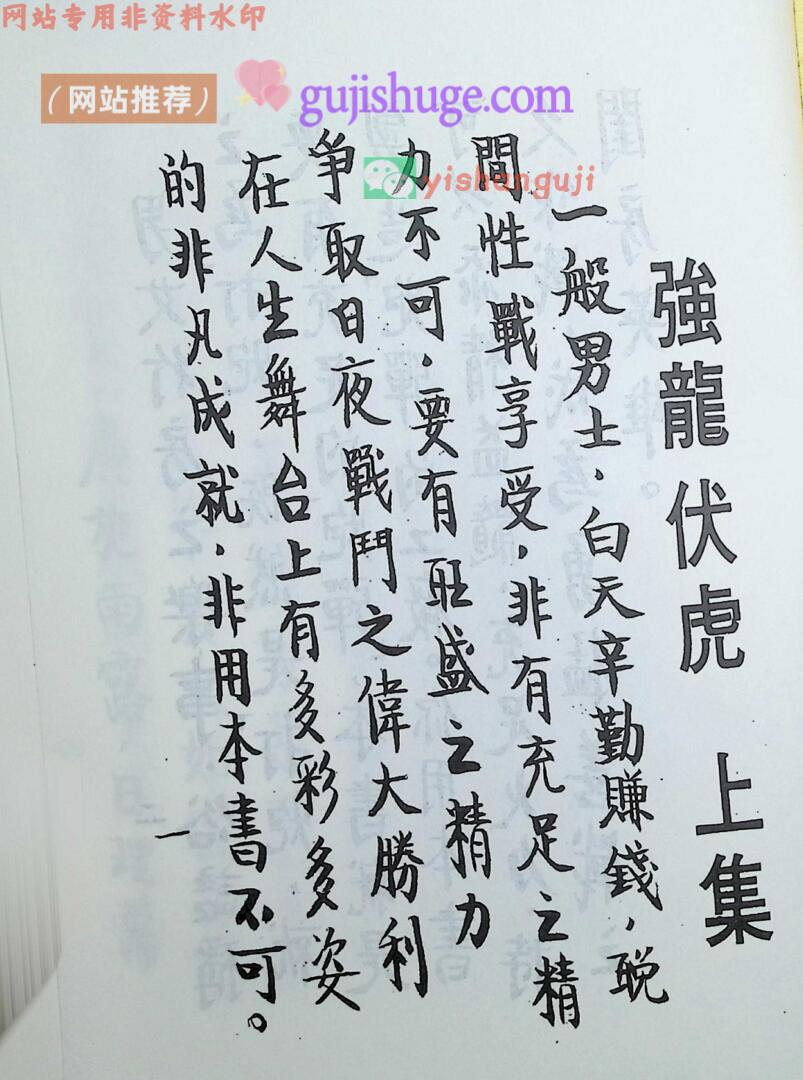 网站专用非资料水印
（网站推荐）
gujishuge.com
yishanguji
強龍伏虎 上集
一般男士，白天辛勤賺錢，晚
間性戰享受，非有充足之精
力不可，要有旺盛之精力
爭取日夜戰鬥之偉大勝利
在人生舞台上有多彩多姿
的非凡成就，非用本書不可。
一